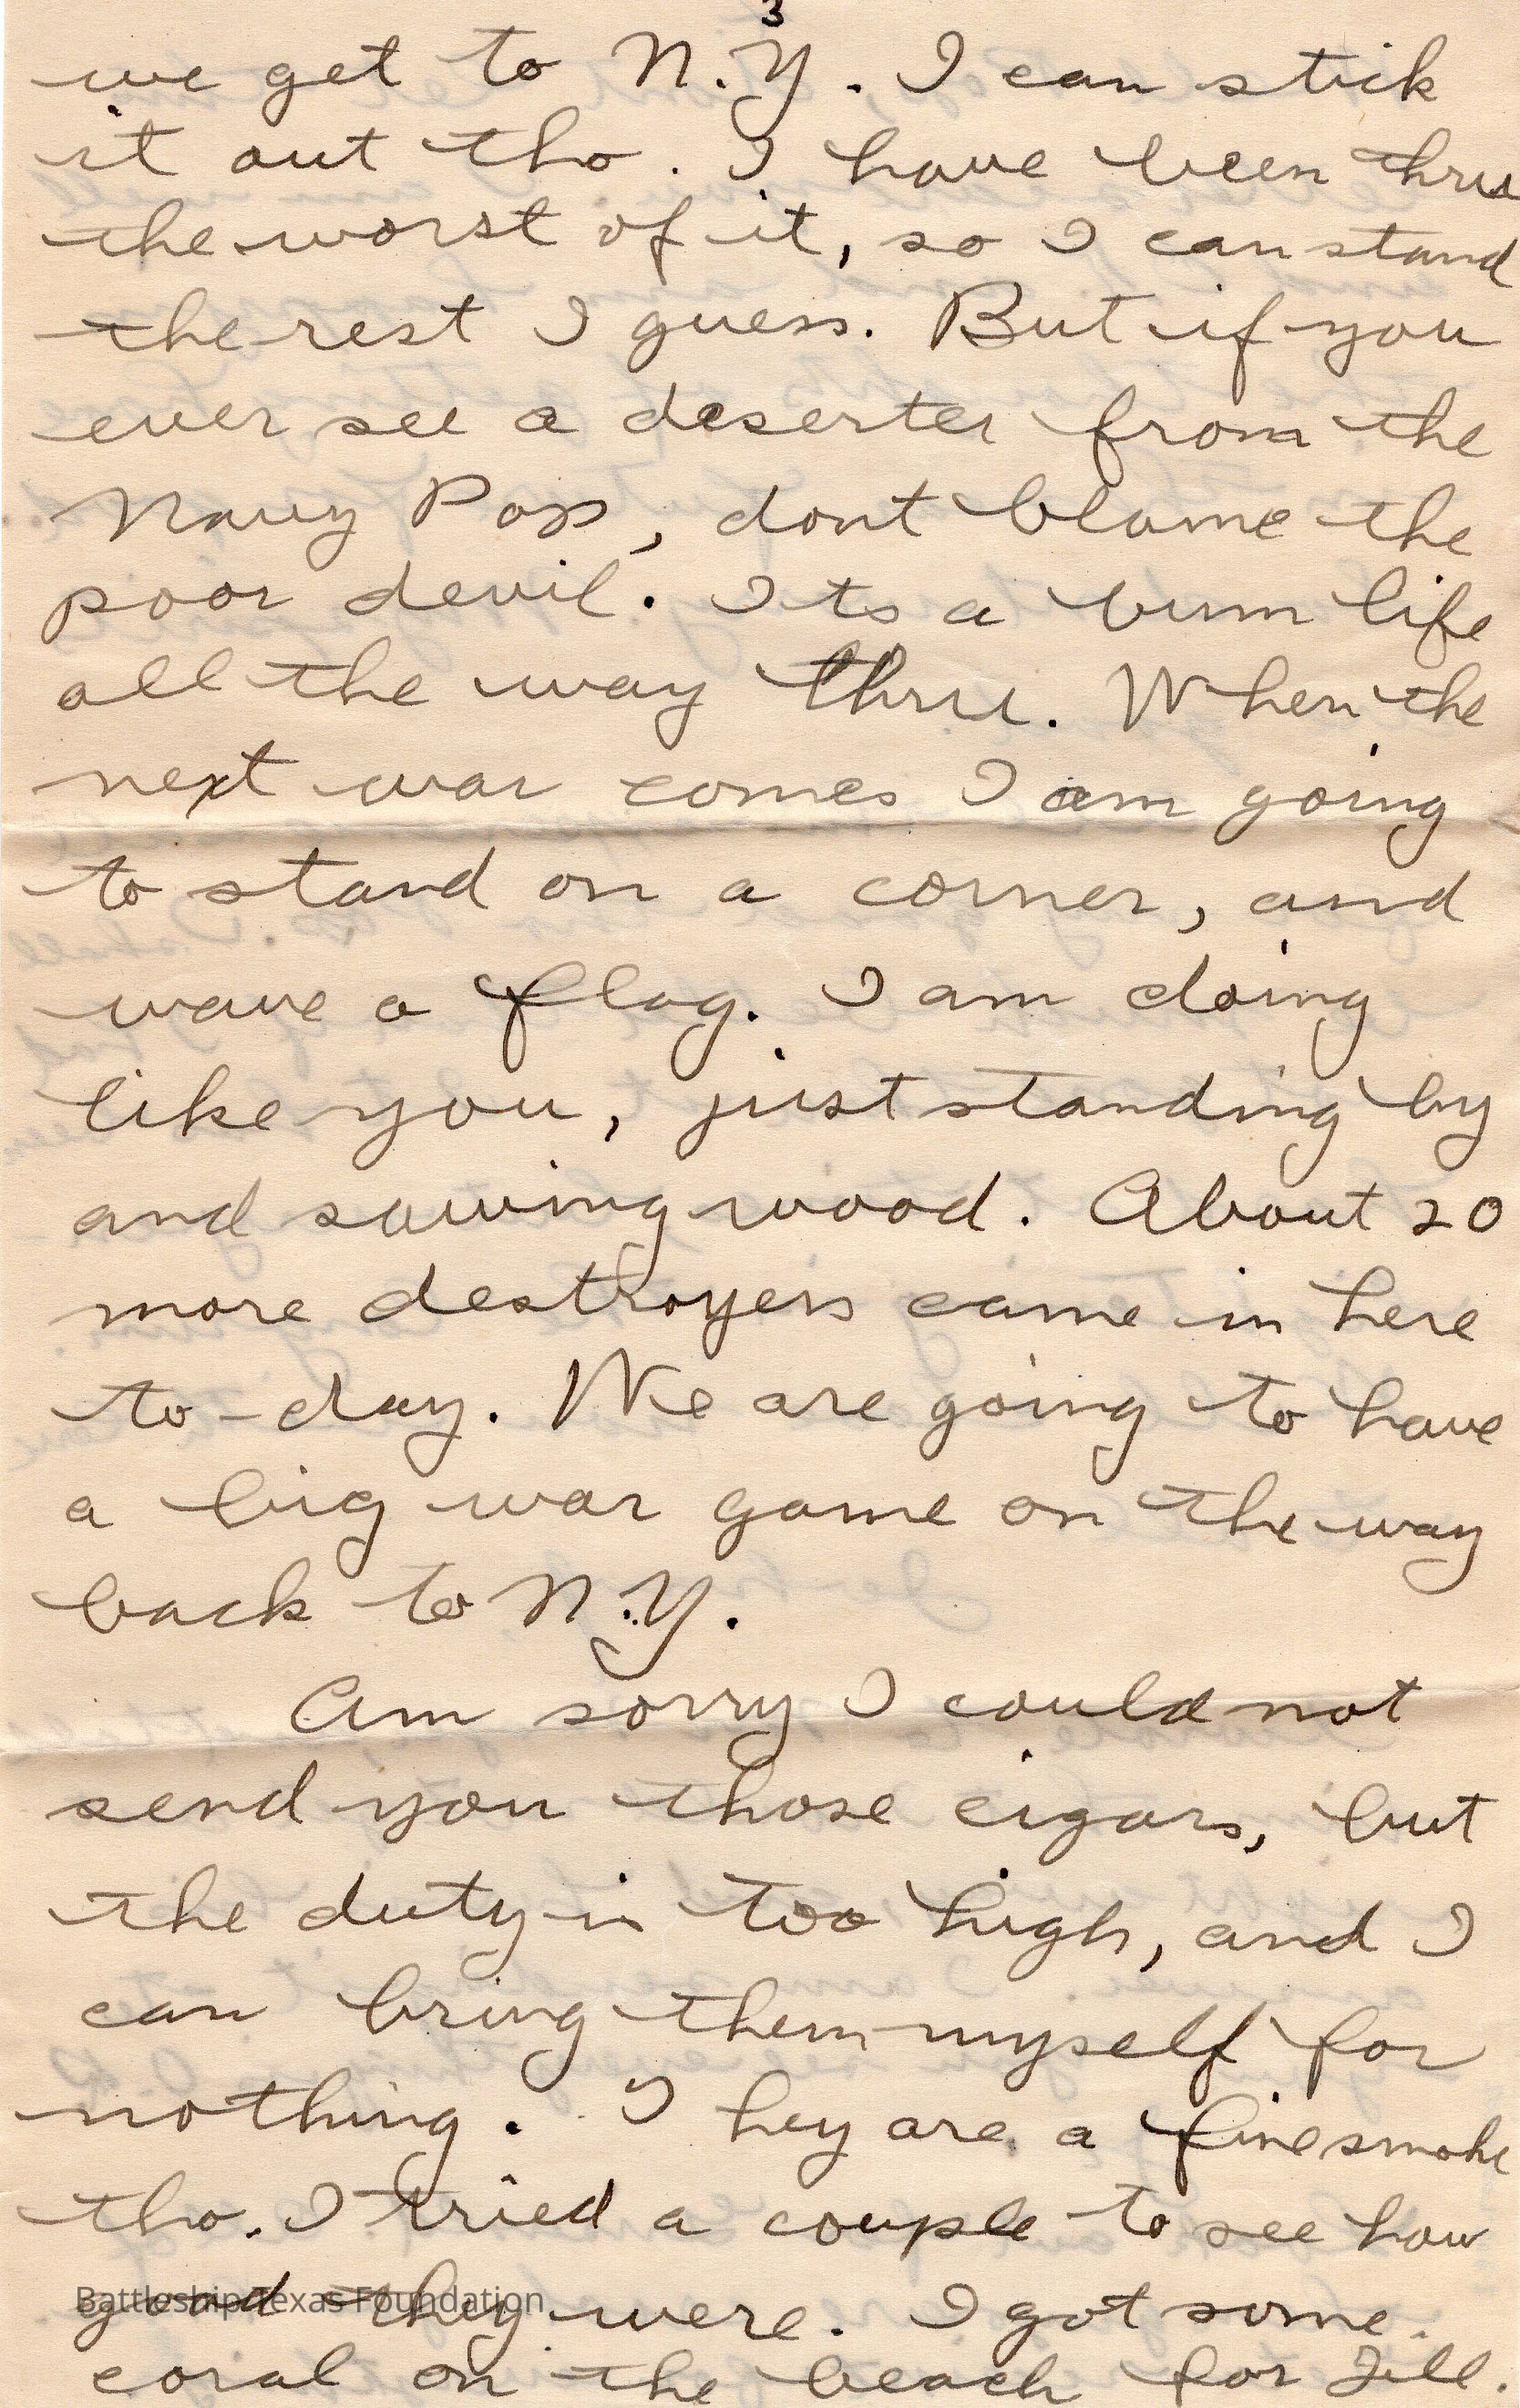 3
we get to N.Y. I can stick
it out tho. I have been thru
the worst of it, so I can stand
the rest I guess. But if you
ever see a deserter from the
Navy Pop, dont blame the
poor devil. Its a bum life
all the way thru. When the
next war comes I am going
to stand on a corner, and
wave a flag. I am doing
like you, just standing by
and sawing wood. About 20
more destroyers came in here
to-day. We are going to have
a big war game on the way
back to N.Y.
Am sorry I could not
send you those cigars, but
the duty is too high, and I
can bring them myself for
nothing. They are a fine smoke
tho. I tried a couple to see how
good they were. I got some
Battleship Texas Foundation
coral on the beach for Jill.